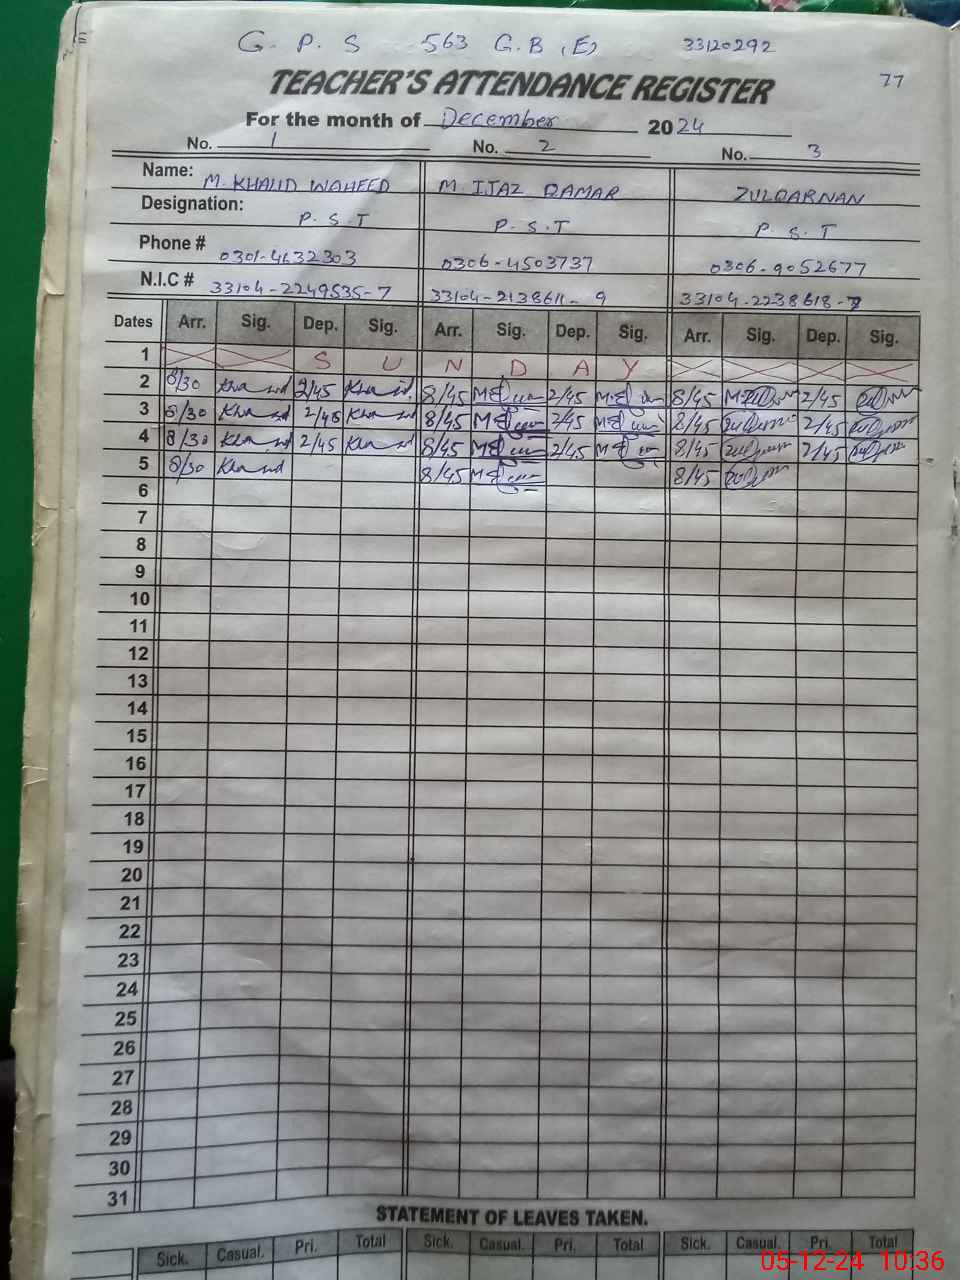 G. P. S 563 G.B (E) 33120292
77
TEACHER'S ATTENDANCE REGISTER
For the month of December 2024
No. 1 No. 2 No. 3
Name: M. KHALID WAHEED M. IJAZ QAMAR ZULQARNAN
Designation: P.S.T P.S.T P.S.T
Phone # 0301-4632303 0306-4503737 0306-9052677
N.I.C # 33104-2249535-7 33104-2138611-9 33104-2238618-7
Dates Arr. Sig. Dep. Sig. Arr. Sig. Dep. Sig. Arr. Sig. Dep. Sig.
1 S U N D A Y
2 8/30 Khalid 2/45 Khalid 8/45 2/45 8/45 2/45
3 8/30 Khalid 2/45 Khalid 8/45 2/45 8/45 2/45
4 8/30 Khalid 2/45 Khalid 8/45 2/45 8/45 2/45
5 8/30 Khalid 8/45 8/45
6
7
8
9
10
11
12
13
14
15
16
17
18
19
20
21
22
23
24
25
26
27
28
29
30
31
STATEMENT OF LEAVES TAKEN.
Sick. Casual. Pri. Total Sick. Casual. Pri. Total Sick. Casual. Pri. Total
05-12-24 10:36